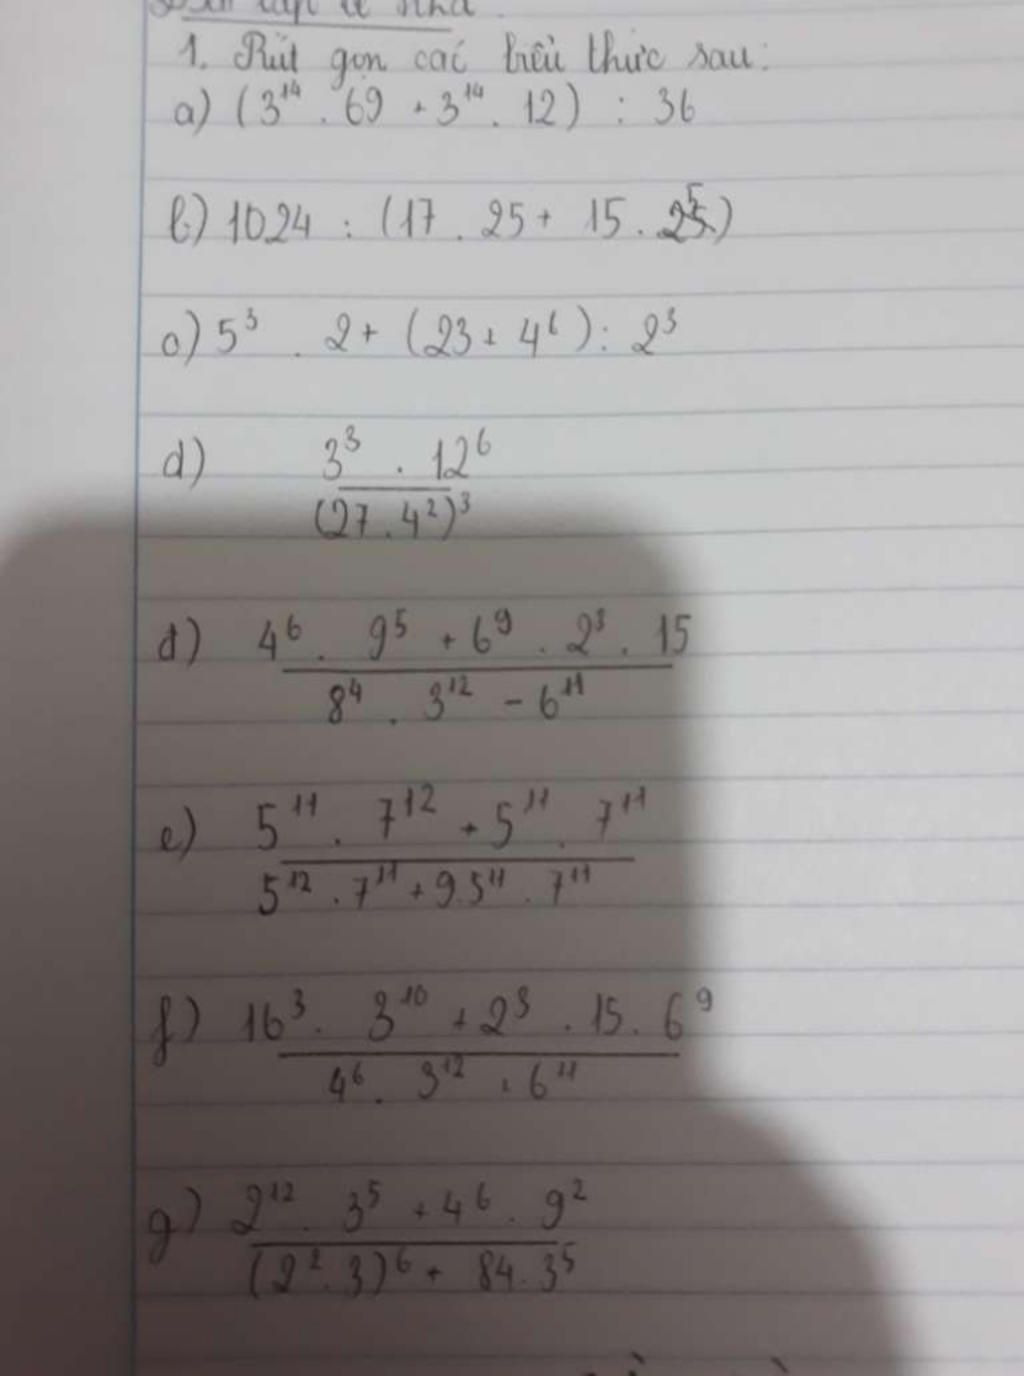 1. Rút gọn các biểu thức sau:
a) (3¹⁴ . 69 + 3¹⁴ . 12) : 36
b) 1024 : (17 . 25 + 15 . 2⁵)
c) 5³ . 2 + (23 + 4⁶) : 2³
d) 3³ . 12⁶
(27 . 4²)³
đ) 4⁶ . 9⁵ + 6⁹ . 2³ . 15
8⁴ . 3¹² - 6¹¹
e) 5¹¹ . 7¹² + 5¹¹ . 7¹¹
5¹² . 7¹¹ + 9.5¹¹ . 7¹¹
f) 16³ . 3¹⁰ + 2³ . 15 . 6⁹
4⁶ . 3¹² + 6¹¹
g) 2¹² . 3⁵ + 4⁶ . 9²
(2² . 3)⁶ + 84 . 3⁵